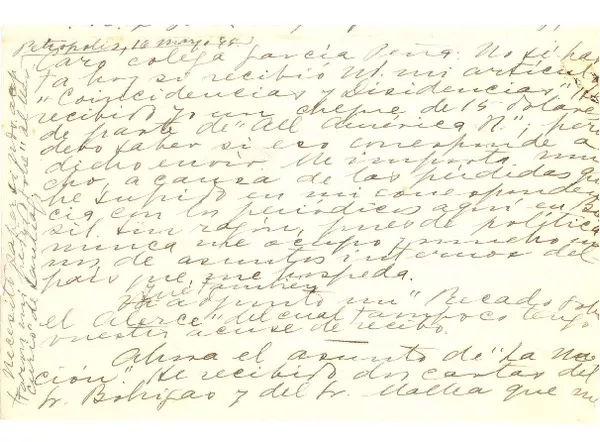 Petropolis, 16 mayo 45
Caro colega García Pena: No sé has
ta hoy si recibio Ud. mi artícul
"Coincidencias y Disidencias". He
recibido yo un cheque de 15 dolare
de parte de "All América N."; pero
debo saber si eso corresponde a
dicho envío. Me importa mu
cho, a causa de las pérdidas qu
he sufrido en mi corresponden
cia con los periódicos aquí en Bra
sil. Sin razón, pues de política
nunca me ocupo y mucho me
nos de asuntos internos del
país que me hospeda.
adjunto un "Recado sobr
el Alerce" del cual tampoco tengo
vuestro acuse de recibo.
Ahora el asunto de "La Na
ción". He recibido dos cartas del
Sr. Bohigas y del Sr. Mallea que me
Necesito saber si